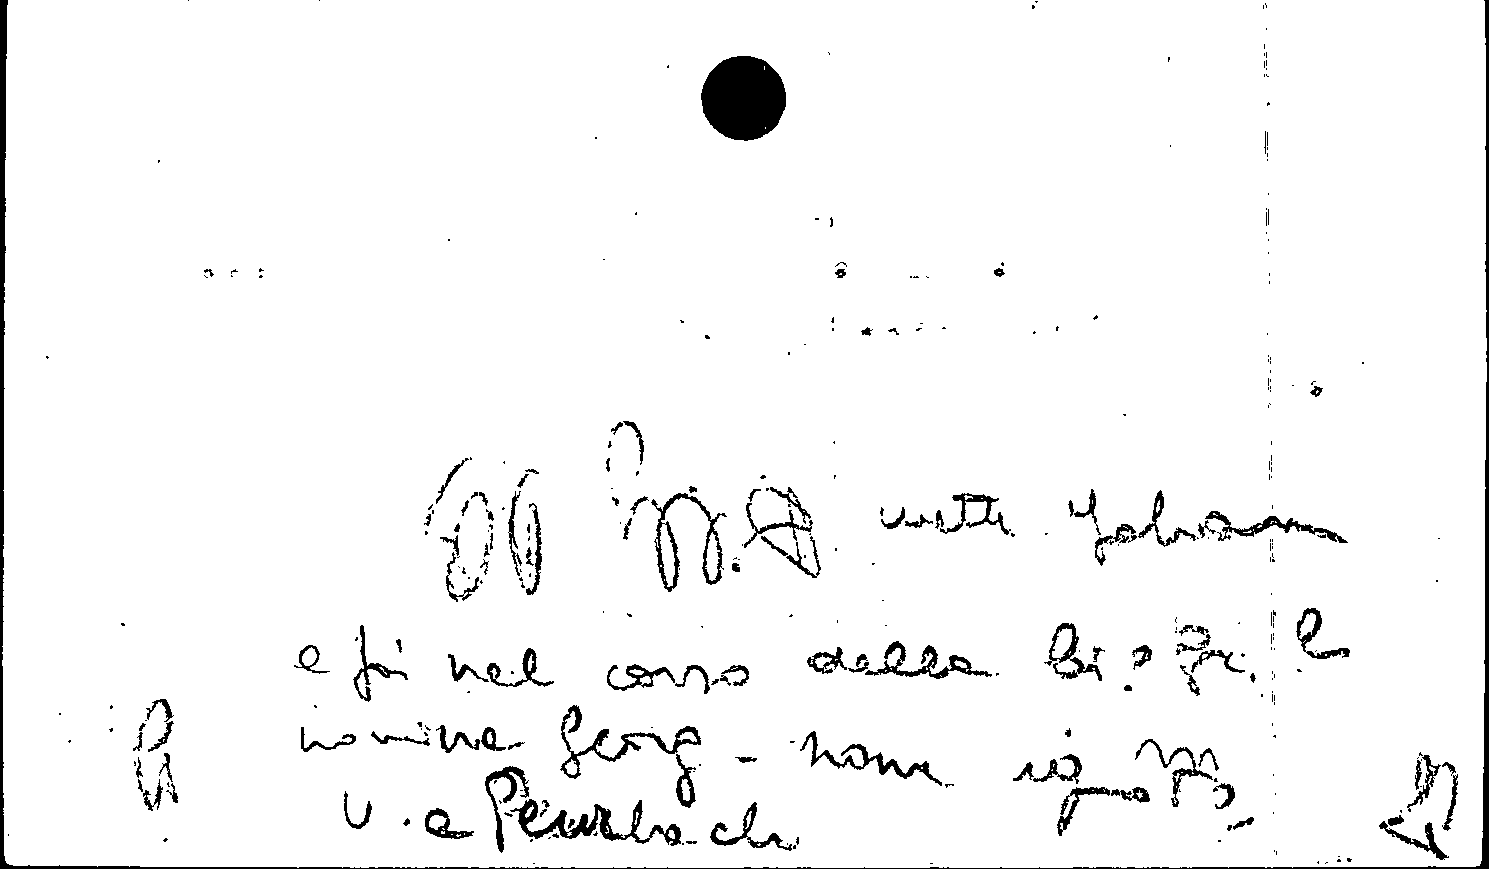 mette Johann
e poi nel corso della biogr. lo
nomina Georg - nome ignoto
V. a Peurbach